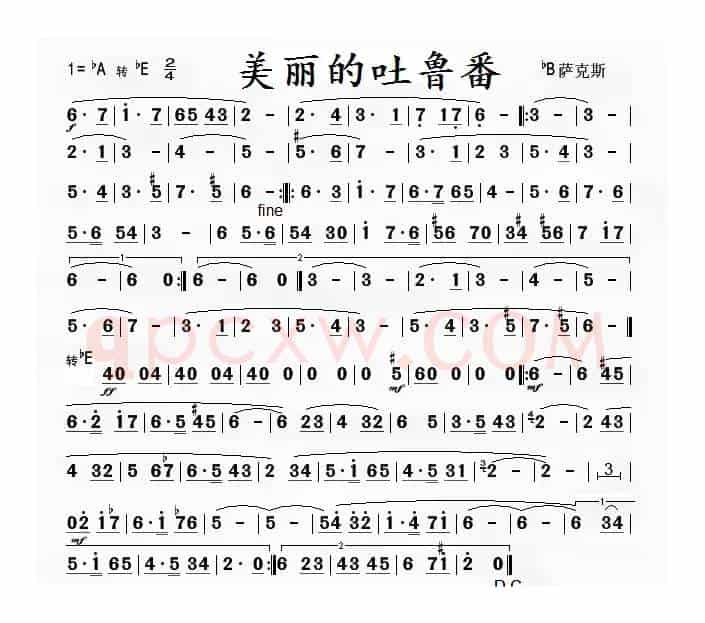 1=♭A 转♭E 2/4 美丽的吐鲁番 ♭B萨克斯
6·7|i·7|65 43|2 -|2·4|3·1|7 17|6 -|:3 -|3 -|
2·1|3 -|4 -|5 -|#5·6|7 -|3·1|2 3|5·4|3 -|
5·4|3·#5|7·#5|6 -:||:6·3|i·7|6·7 65|4 -|5·6|7·6|
fine
5·6 54|3 -|6 5·6|54 30|i 7·6|#56 70|3#4 #56|7 i7|
1 2
6 -|6 0:|6 -|6 0||3 -|3 -|2·1|3 -|4 -|5 -|
5·6|7 -|3·1|2 3|5·4|3 -|5·4|3·#5|7·#5|6 -||
转♭E
40 04|40 04|40 04|40 0|0 0|0 #5|60 0|0 0|:6 -|6 #45|
ff mf mf
6·2 i7|6·5 #45|6 -|6 23|4 32|6 5|3·5 43|2 -|2 43|
4 32|5 6♭7|6·5 43|2 34|5·i 65|4·5 31|2 -|2 -|3|
1
02 i♭7|6·i ♭76|5 -|5 -|54 32|i·4 7i|6 -|6 -|6 34|
mf
2
5·i 65|4·5 34|2·0:|6 23|43 45|6 7#i|2 0||
D.C
qpcxw.COM